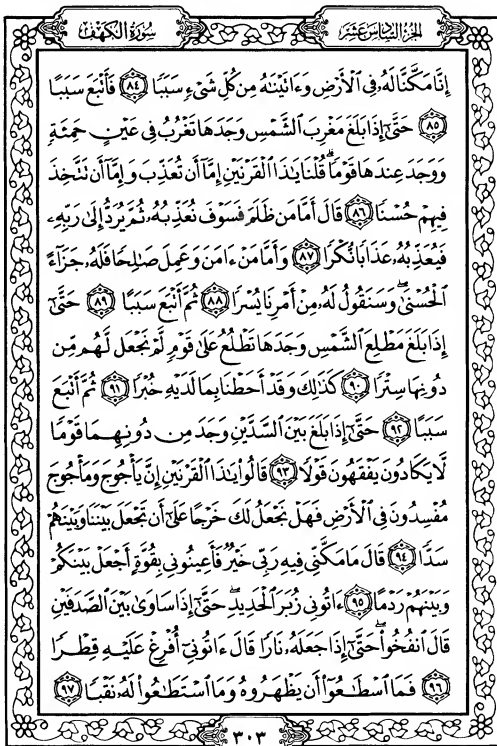 سُورَةُ الكَهْفِ
الجُزْءُ السَّادِسَ عَشَرَ
إِنَّا مَكَّنَّا لَهُۥ فِى ٱلْأَرْضِ وَءَاتَيْنَٰهُ مِن كُلِّ شَىْءٍ سَبَبًا ٨٤ فَأَتْبَعَ سَبَبًا
٨٥ حَتَّىٰٓ إِذَا بَلَغَ مَغْرِبَ ٱلشَّمْسِ وَجَدَهَا تَغْرُبُ فِى عَيْنٍ حَمِئَةٍ
وَوَجَدَ عِندَهَا قَوْمًا ۗ قُلْنَا يَٰذَا ٱلْقَرْنَيْنِ إِمَّآ أَن تُعَذِّبَ وَإِمَّآ أَن تَتَّخِذَ
فِيهِمْ حُسْنًا ٨٦ قَالَ أَمَّا مَن ظَلَمَ فَسَوْفَ نُعَذِّبُهُۥ ثُمَّ يُرَدُّ إِلَىٰ رَبِّهِۦ
فَيُعَذِّبُهُۥ عَذَابًا نُّكْرًا ٨٧ وَأَمَّا مَنْ ءَامَنَ وَعَمِلَ صَٰلِحًا فَلَهُۥ جَزَآءً
ٱلْحُسْنَىٰ ۖ وَسَنَقُولُ لَهُۥ مِنْ أَمْرِنَا يُسْرًا ٨٨ ثُمَّ أَتْبَعَ سَبَبًا ٨٩ حَتَّىٰٓ
إِذَا بَلَغَ مَطْلِعَ ٱلشَّمْسِ وَجَدَهَا تَطْلُعُ عَلَىٰ قَوْمٍ لَّمْ نَجْعَل لَّهُم مِّن
دُونِهَا سِتْرًا ٩٠ كَذَٰلِكَ وَقَدْ أَحَطْنَا بِمَا لَدَيْهِ خُبْرًا ٩١ ثُمَّ أَتْبَعَ
سَبَبًا ٩٢ حَتَّىٰٓ إِذَا بَلَغَ بَيْنَ ٱلسَّدَّيْنِ وَجَدَ مِن دُونِهِمَا قَوْمًا
لَّا يَكَادُونَ يَفْقَهُونَ قَوْلًا ٩٣ قَالُوا۟ يَٰذَا ٱلْقَرْنَيْنِ إِنَّ يَأْجُوجَ وَمَأْجُوجَ
مُفْسِدُونَ فِى ٱلْأَرْضِ فَهَلْ نَجْعَلُ لَكَ خَرْجًا عَلَىٰٓ أَن تَجْعَلَ بَيْنَنَا وَبَيْنَهُمْ
سَدًّا ٩٤ قَالَ مَا مَكَّنِّى فِيهِ رَبِّى خَيْرٌ فَأَعِينُونِى بِقُوَّةٍ أَجْعَلْ بَيْنَكُمْ
وَبَيْنَهُمْ رَدْمًا ٩٥ ءَاتُونِى زُبَرَ ٱلْحَدِيدِ ۖ حَتَّىٰٓ إِذَا سَاوَىٰ بَيْنَ ٱلصَّدَفَيْنِ
قَالَ ٱنفُخُوا۟ ۖ حَتَّىٰٓ إِذَا جَعَلَهُۥ نَارًا قَالَ ءَاتُونِىٓ أُفْرِغْ عَلَيْهِ قِطْرًا
٩٦ فَمَا ٱسْطَٰعُوٓا۟ أَن يَظْهَرُوهُ وَمَا ٱسْتَطَٰعُوا۟ لَهُۥ نَقْبًا ٩٧
٣٠٣